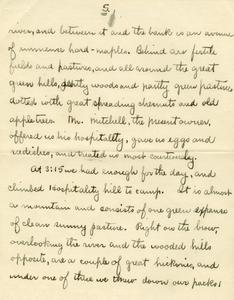 5.
river, and between it and the bank is an avenue
of immense hard-maples. Behind are fertile
fields and pastures, and all around the great
green hills, partly woods and partly green pasture
dotted with great spreading chestnuts and old
appletrees. Mr. Mitchell, the present owner,
offered us his hospitality, gave us eggs and
radishes, and treated us most courteously.
At 3:15 we had enough for the day, and
climbed Hospitality hill to camp. It is almost
a mountain and consists of one green expanse
of clean sunny pasture. Right on the brow,
overlooking the river and the wooded hills
opposite, are a couple of great hickories, and
under one of these we threw down our packs.